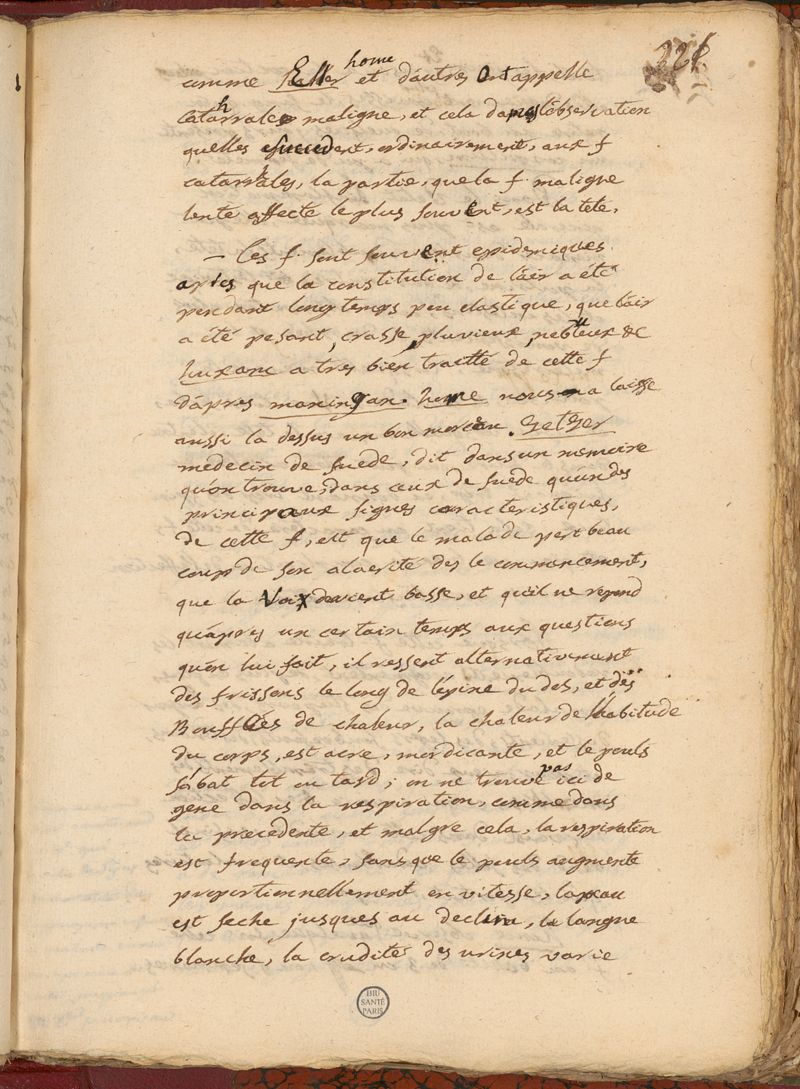 228
home
comme Haller et d'autres ont appelle
catarrhales maligne, et cela dans l'observation
quelles succedent, ordinairement, aux f
catarrhales, la partie, que la f. maligne
lente affecte le plus souvent, est la tete.
— Ces f. sont souvent epidemiques
apres que la constitution de l'air a été
pendant longtemps peu elastique, que l'air
a été pesant, crasse, pluvieux, nebuleux &c
huxam a tres bien traitté de cette f
d'apres maningan. home nous en a laissé
aussi la dessus un bon morceau. Zetzer
medecin de suede, dit dans un memoire
qu'on trouve, dans ceux de suede qu'un des
principaux signes caracteristiques,
de cette f, est que le malade pert beau
coup de son alacrité des le commencement,
que la voix devient basse, et qu'il ne repond
qu'apres un certain temps aux questions
qu'on lui fait, il ressent alternativement
des frissons le long de l'epine du dos, et des
Bouffées de chaleur, la chaleur de l'habitude
du corps, est acre, mordicante, et le pouls
s'abat tot ou tard; on ne trouve pas ici de
gene dans la respiration, comme dans
la precedente, et malgre cela, la respiration
est frequente, sans que le pouls augmente
proportionnellement en vitesse, la peau
est seche jusques au declin, la langue
blanche, la crudité des urines varie
BIU
SANTÉ
PARIS